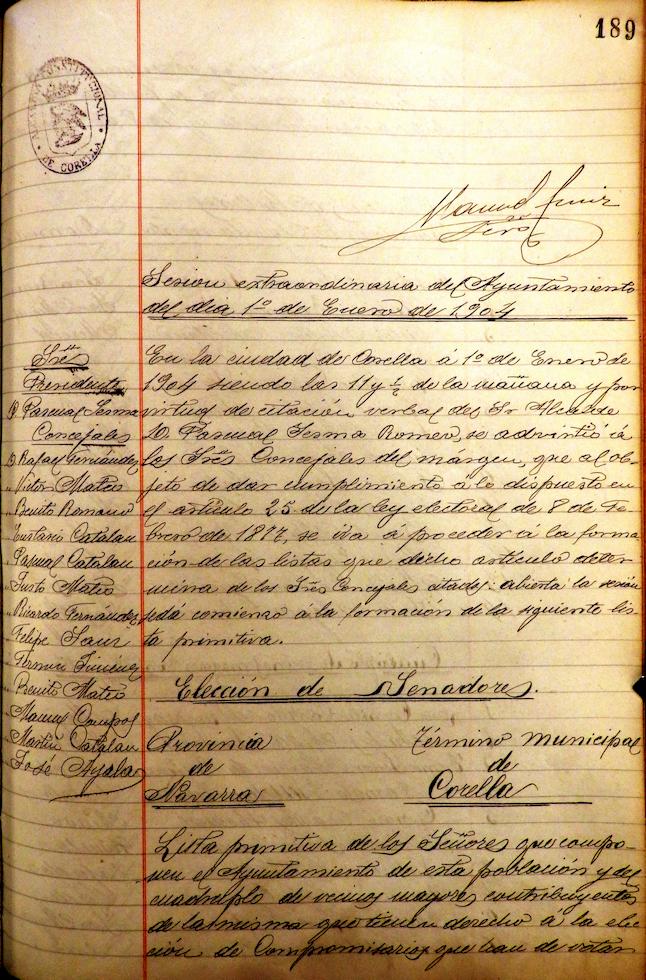 189
ALCALDIA CONSTITUCIONAL
DE CORELLA
Manuel
Sesion extraordinaria del Ayuntamiento
del dia 1º de Enero de 1904
Sres
Presidente
D Pascual Sesma
Concejales
D. Rafael Fernández
" Victor Mateo
" Benito Romano
" Eustasio Catalan
" Pascual Catalan
" Justo Mateo
" Ricardo Fernández
" Felipe Sanz
" Fermin Jiménez
" Benito Mateo
" Manuel Campos
" Martin Catalan
" José Ayala
En la ciudad de Corella á 1º de Enero de
1904 siendo las 11 y ½ de la mañana y por
virtud de citación verbal del Sr Alcalde
D. Pascual Sesma Romero, se advirtió á
los Sres Concejales del márgen, que al ob-
jeto de dar cumplimiento á lo dispuesto en
el artículo 25 de la ley electoral de 8 de Fe-
brero de 1877, se iva á proceder á la forma-
ción de las listas que dicho artículo deter-
mina de los Sres Concejales citados: abierta la sesión
se dá comienzo á la formación de la siguiente lis-
ta primitiva.
Elección de Senadores.
Provincia
de
Navarra
Término Municipal
de
Corella
Lista primitiva de los Señores que compo-
nen el Ayuntamiento de esta población y del
cuadruplo de vecinos mayores contribuyentes
de la misma que tienen derecho á la elec-
ción de Compromisarios que han de votar